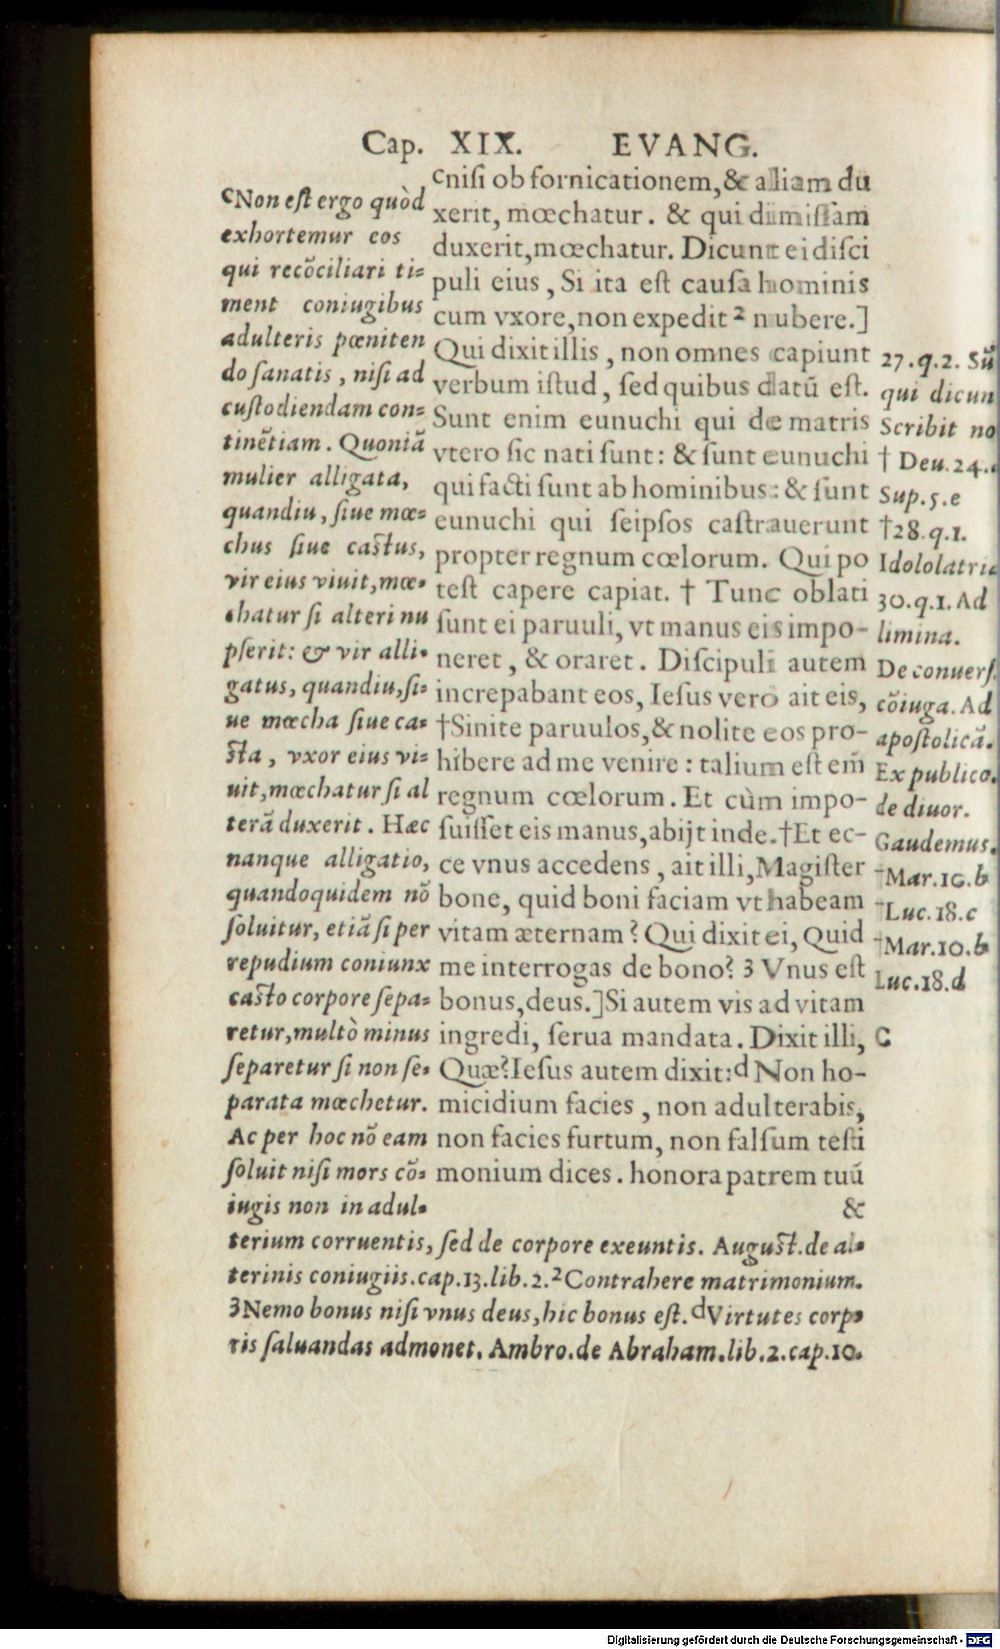 Cap. XIX. EVANG.
ᶜniſi ob fornicationem,& aliam du
xerit, mœchatur. & qui dimiſſam
duxerit,mœchatur. Dicunt ei diſci
puli eius, Si ita eſt cauſa hominis
cum vxore,non expedit ² nubere.]
Qui dixit illis, non omnes capiunt
verbum iſtud, ſed quibus datũ eſt.
Sunt enim eunuchi qui de matris
vtero ſic nati ſunt: & ſunt eunuchi
qui facti ſunt ab hominibus: & ſunt
eunuchi qui ſeipſos caſtrauerunt
propter regnum cœlorum. Qui po
teſt capere capiat. † Tunc oblati
ſunt ei paruuli, vt manus eis impo-
neret, & oraret. Diſcipuli autem
increpabant eos, Ieſus vero ait eis,
†Sinite paruulos,& nolite eos pro-
hibere ad me venire: talium eſt em̃
regnum cœlorum. Et cùm impo-
ſuiſſet eis manus,abijt inde.†Et ec-
ce vnus accedens, ait illi,Magiſter
bone, quid boni faciam vt habeam
vitam æternam? Qui dixit ei, Quid
me interrogas de bono? 3 Vnus eſt
bonus,deus.]Si autem vis ad vitam
ingredi, ſerua mandata. Dixit illi,
Quæ?Ieſus autem dixit:ᵈ Non ho-
micidium facies, non adulterabis,
non facies furtum, non falſum teſti
monium dices. honora patrem tuũ
&
ᶜNon eſt ergo quòd
exhortemur eos
qui recõciliari ti-
ment coniugibus
adulteris pœniten
do ſanatis, niſi ad
cuſtodiendam con-
tinẽtiam. Quoniã
mulier alligata,
quandiu, ſiue mœ-
chus ſiue caſtus,
vir eius viuit,mœ-
chatur ſi alteri nu
pſerit: & vir alli-
gatus, quandiu,ſi-
ue mœcha ſiue ca-
ſta, vxor eius vi-
uit,mœchatur ſi al
terã duxerit. Hæc
nanque alligatio,
quandoquidem nõ
ſoluitur, etiã ſi per
repudium coniunx
caſto corpore ſepa-
retur,multò minus
ſeparetur ſi non ſe-
parata mœchetur.
Ac per hoc nõ eam
ſoluit niſi mors cõ-
iugis non in adul-
terium corruentis, ſed de corpore exeuntis. Auguſt.de al-
terinis coniugiis.cap.13.lib.2.²Contrahere matrimonium.
3Nemo bonus niſi vnus deus,hic bonus eſt.ᵈVirtutes corpo
ris ſaluandas admonet. Ambro.de Abraham.lib.2.cap.10.
27.q.2. Sũ
qui dicun
Scribit no
† Deu.24.
Sup.5.e
†28.q.1.
Idololatria
30.q.1.Ad
limina.
De conuerſ.
cõiuga.Ad
apoſtolicã.
Ex publico.
de diuor.
Gaudemus.
†Mar.10.b
†Luc.18.c
†Mar.10.b
Luc.18.d
C
Digitalisierung gefördert durch die Deutsche Forschungsgemeinschaft - DFG